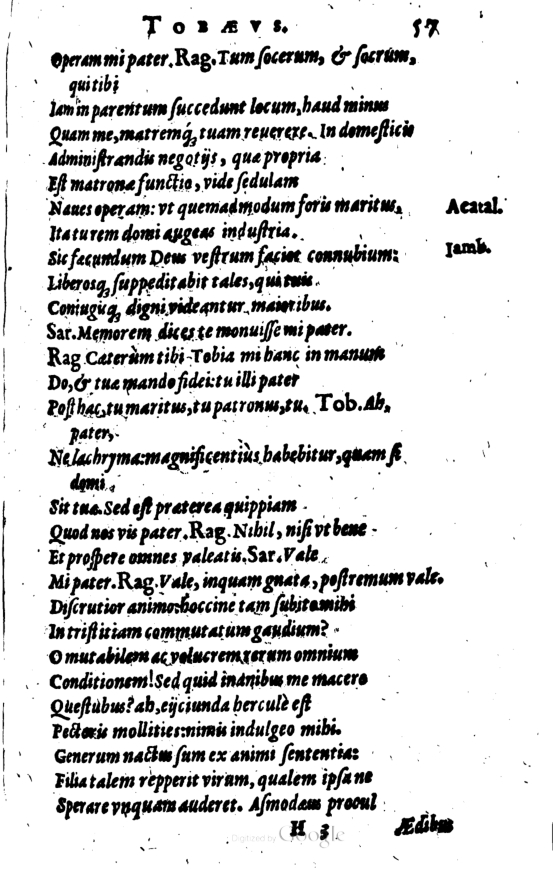 TOBÆVS. 57
Operam mi pater. Rag. Tum socerum, & socrum,
qui tibi
Iam in parentum succedunt locum, haud minus
Quam me, matremq́; tuam reuerere. In domesticis
Administrandis negotijs, quæ propria
Est matronæ functio, vide sedulam
Naues operam: vt quemadmodum foris maritus, Acatal.
Ita tu rem domi augeas industria.
Sic fæcundum Deus vestrum faciet connubium: Jamb.
Liberosq; suppeditabit tales, qui tuis
Coniugiq; digni videantur maioribus.
Sar. Memorem dices te monuisse mi pater.
Rag Cæterùm tibi Tobia mi hanc in manum
Do, & tuæ mando fidei: tu illi pater
Post hac, tu maritus, tu patronus, tu. Tob. Ah,
pater,
Ne lachryma: magnificentiùs habebitur, quam si
domi
Sit tuæ. Sed est præterea quippiam
Quod nos vis pater. Rag. Nihil, nisi vt bene
Et prospere omnes valeatis. Sar. Vale
Mi pater. Rag. Vale, inquam gnata, postremum vale.
Discrutior animo: hoccine tam subito mihi
In tristitiam commutatum gaudium?
O mutabilem ac volucrem rerum omnium
Conditionem! Sed quid inanibus me macero
Questubus? ah, eijciunda herculè est
Pectoris mollities: nimis indulgeo mihi.
Generum nactus sum ex animi sententia:
Filia talem repperit virum, qualem ipsa ne
Sperare vnquam auderet. Asmodæus procul
H 3 Ædibus
Digitized by Google